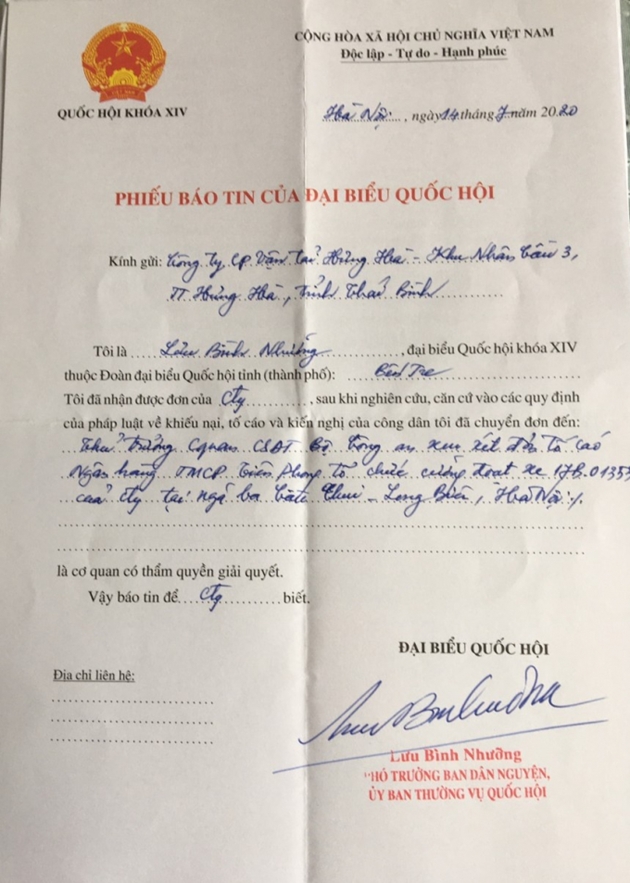 CỘNG HÒA XÃ HỘI CHỦ NGHĨA VIỆT NAM
Độc lập - Tự do - Hạnh phúc
QUỐC HỘI KHÓA XIV
Hà Nội, ngày 14 tháng 7 năm 2020
PHIẾU BÁO TIN CỦA ĐẠI BIỂU QUỐC HỘI
Kính gửi: Công ty CP Vận tải Hưng Hà - Khu Nhân Cầu 3,
TT. Hưng Hà, Tỉnh Thái Bình
Tôi là Lưu Bình Nhưỡng, đại biểu Quốc hội khóa XIV
thuộc Đoàn đại biểu Quốc hội tỉnh (thành phố): Bến Tre
Tôi đã nhận được đơn của Cty, sau khi nghiên cứu, căn cứ vào các quy định
của pháp luật về khiếu nại, tố cáo và kiến nghị của công dân tôi đã chuyển đơn đến:
Thủ trưởng Cquan CSĐT Bộ Công an xem xét đơn tố cáo
Ngân hàng TMCP Tiên Phong tổ chức cưỡng đoạt xe 17B.01353
của Cty tại ngã ba Chui - Long Biên, Hà Nội ./.
là cơ quan có thẩm quyền giải quyết.
Vậy báo tin để Cty biết.
ĐẠI BIỂU QUỐC HỘI
Địa chỉ liên hệ:
Lưu Bình Nhưỡng
PHÓ TRƯỞNG BAN DÂN NGUYỆN,
ỦY BAN THƯỜNG VỤ QUỐC HỘI